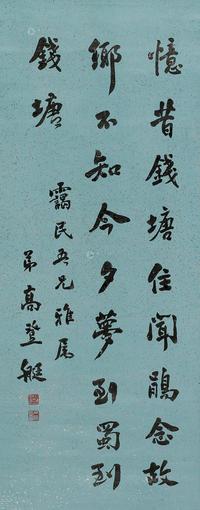 憶昔錢塘住聞鵑念故
鄉不知今夕夢到蜀到
錢塘
靄民吾兄雅屬
弟高登艇